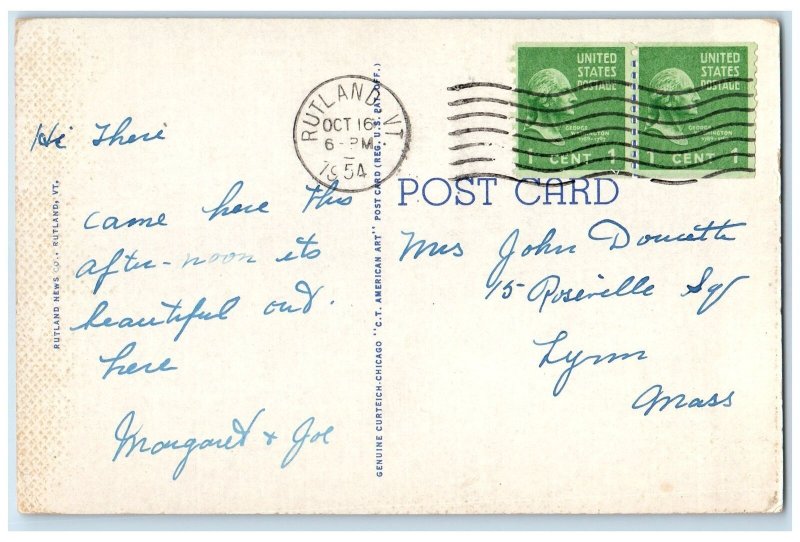 Hi There
came here this
after-noon its
beautiful out.
here
Margaret & Joe
RUTLAND NEWS CO., RUTLAND, VT.
GENUINE CURTEICH-CHICAGO "C.T. AMERICAN ART" POST CARD (REG. U.S. PAT. OFF.)
RUTLAND, VT
OCT 16
6 - PM
1954
UNITED
STATES
POSTAGE
GEORGE
WASHINGTON
1789-1797
1 CENT 1
UNITED
STATES
POSTAGE
GEORGE
WASHINGTON
1789-1797
1 CENT 1
POST CARD
Mrs John Doucette
15 Roseville Sq
Lynn
Mass